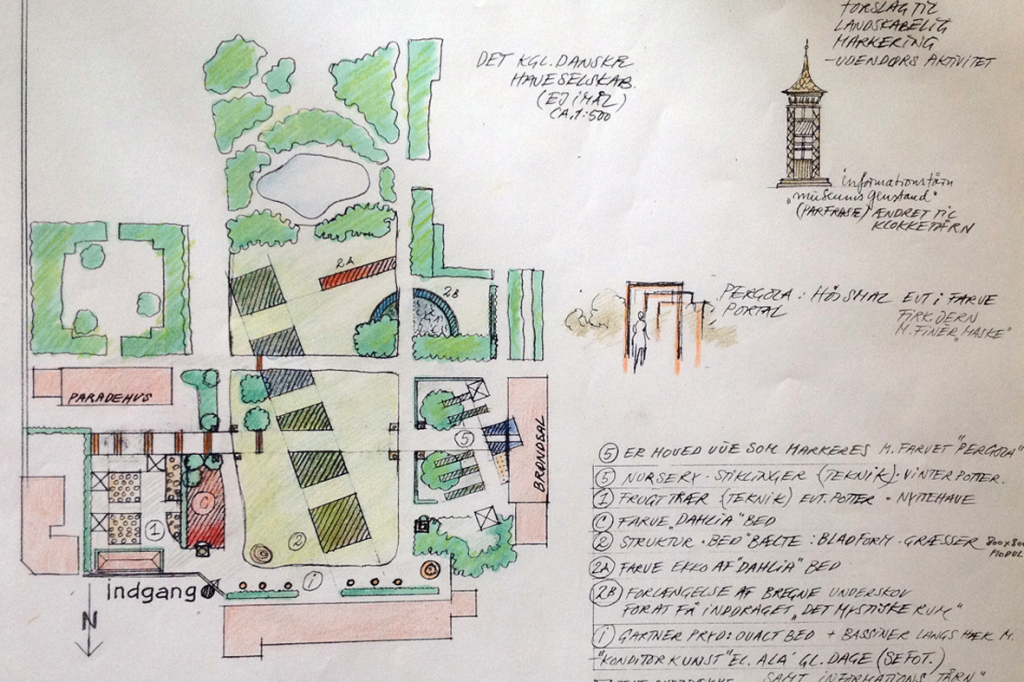 FORSLAG TIL
LANDSKABELIG
MARKERING
- UDENDØRS AKTIVITET
DET KGL. DANSKE
HAVESELSKAB.
(EJ I MÅL)
CA. 1:500
informationstårn
"museums genstand"
(PARFRASE) ÆNDRET TIL
KLOKKETÅRN
2A
2B
PERGOLA: HØJSMAL EVT I FARVE
PORTAL
FIRKØERN
M. FINER "MASKE"
PARADEHUS
BRØNDSAL
5
1
2
i
indgang
N
5 ER HOVED VUE SOM MARKERES M. FARVET "PERGOLA"
5 NURSERY - STIKLINGER (TEKNIK) - VINTERPOTTER.
1 FRUGTTRÆR (TEKNIK) EVT. POTTER - NYTTEHAVE
C FARVE "DAHLIA" BED
2 STRUKTUR - BED "BÆLTE: BLADFORM - GRÆSSER 800x800
MODUL
2A FARVE EKKO AF "DAHLIA" BED
2B FORLÆNGELSE AF BREGNE UNDERSKOV
FOR AT FÅ INDDRAGET "DET MYSTISKE RUM"
i GARTNER PRYD: OVALT BED + BASSINER LANGS HÆK M.
"KONDITORKUNST" EL. ALA' GL. DAGE (SE FOT.)
SAMT INFORMATIONS TÅRN"